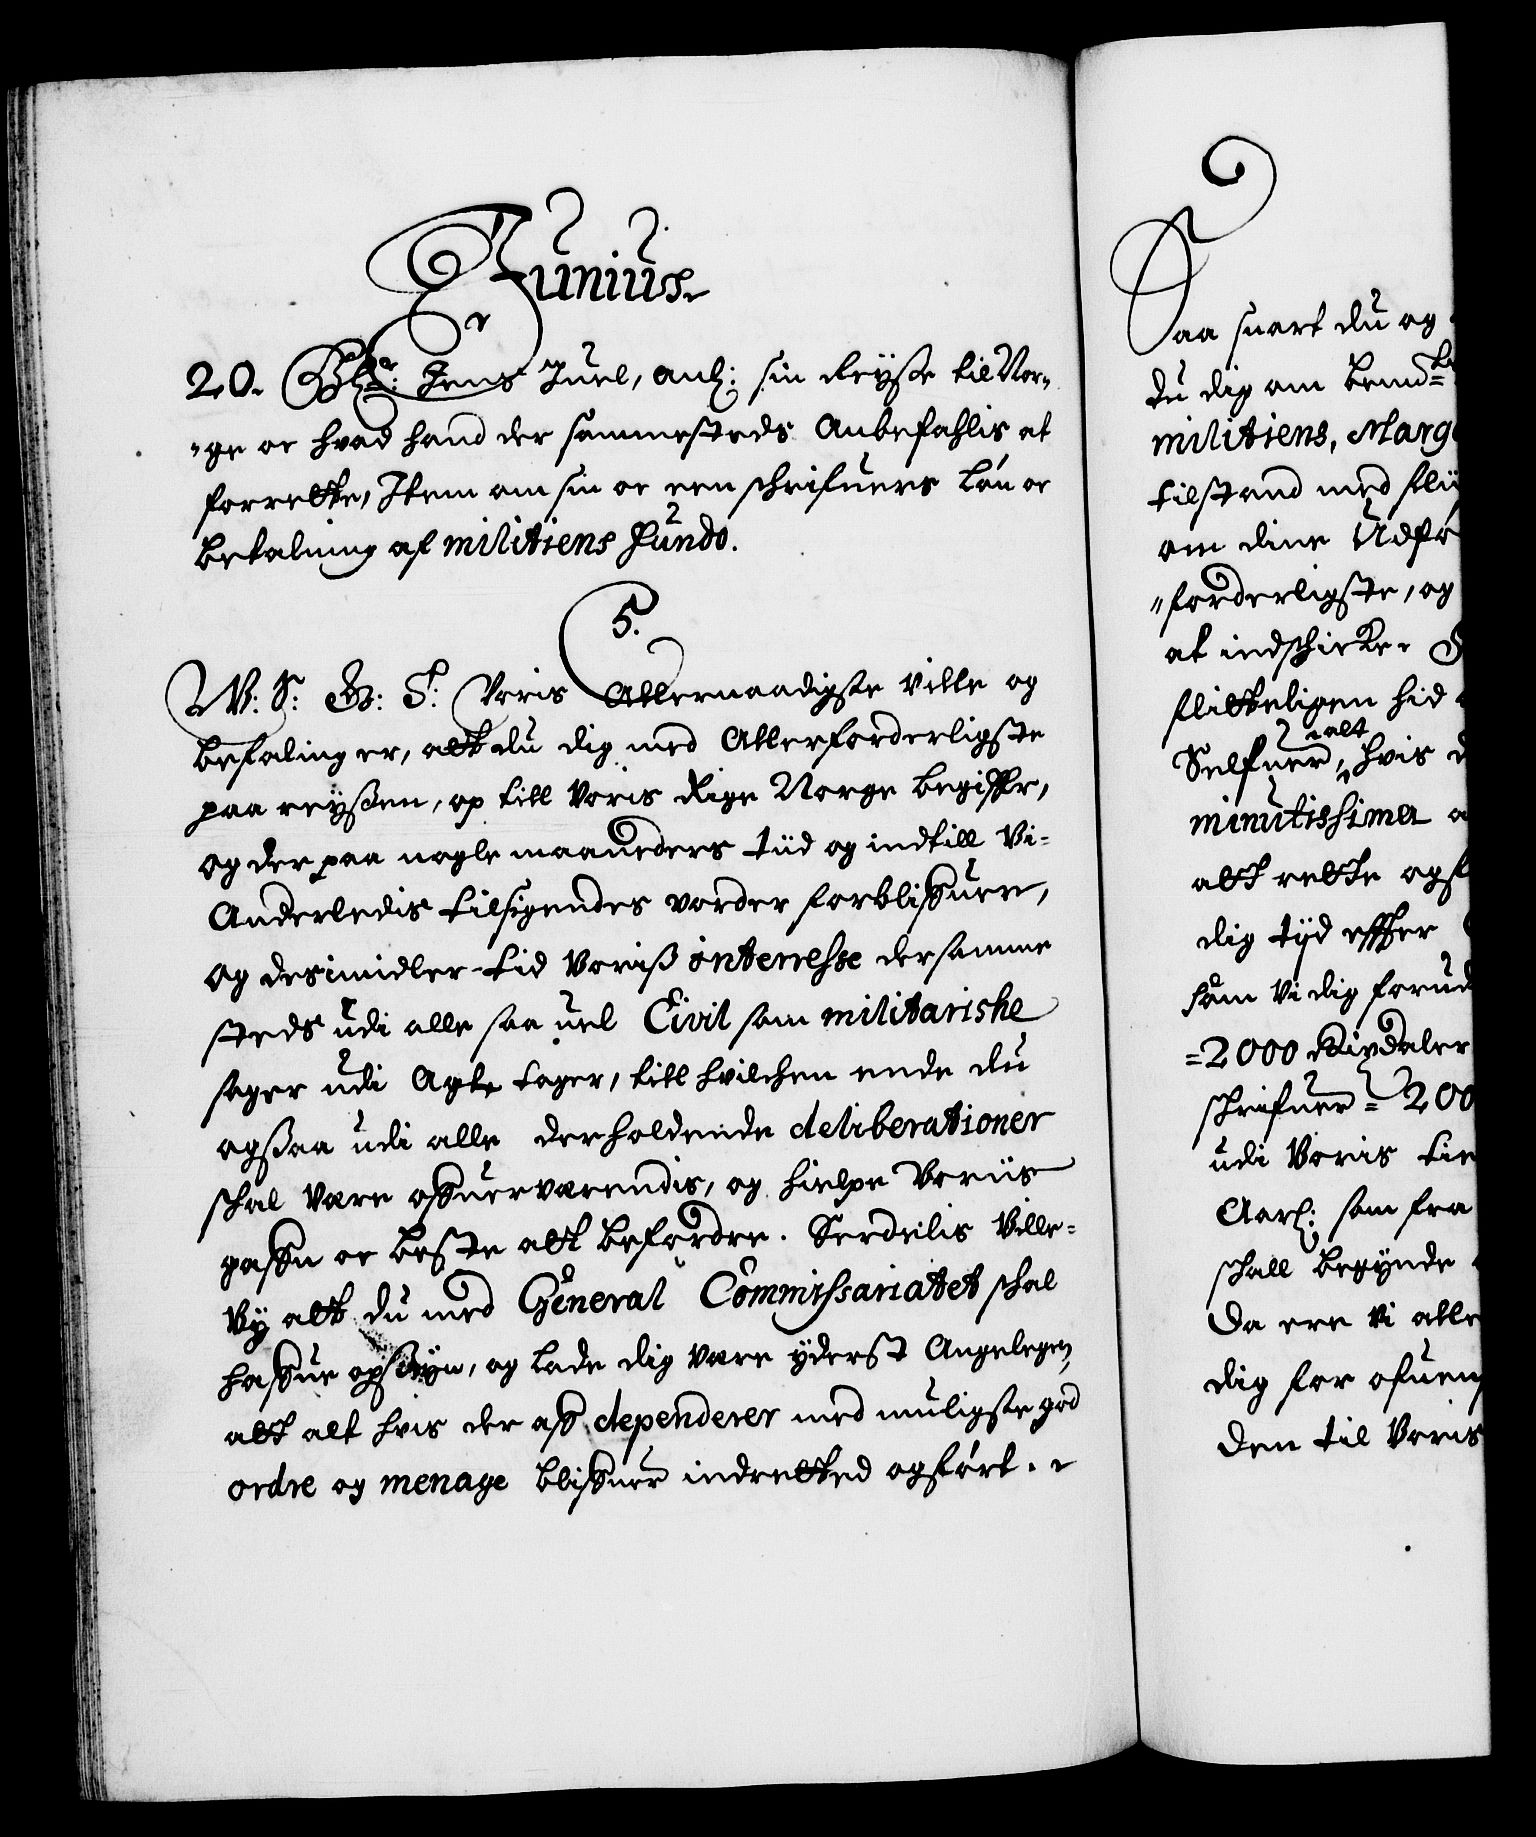 Junius
20. Jens Juel, anl: sin Reyse til Nor,,
,,ge oc hvad hand der sammesteds Anbefahlis at
forrette, Item om sin oc een schrifuers Løn oc
betalning af militiens Fundo.
5.
W: S: G: T: Voris Allernaadigste Ville og
befaling er, att du dig med Allerforderligste
paa reyssen, op till Voris Rige Norge begiffr,
og der paa nogle maaneders tiid og indtill Vi=
Anderledis tilsigendes vorder forbliffuer,
og desimidler-tid Voriss interresse dersamme
steds udi alle saa uel Civil som militarische
sager udi Agt tager, till hvilchen ende du
ogsaa udi alle derholdende deliberationer
schal Være offuerværendis, og hielpe Voriis
gaffn oc beste att befordre. Serdeilis Ville=
Vy att du med General Commissariatet schal
haffue opsiyn, og lade dig være yderst Angelegen,
att alt hvis der aff dependerer med muligste god
ordre og menage bliffuer indretted og ført.
Saa snart du og
du dig om bem.te
militiens, Marg
tilstand med flii
om dine Udfø
,,forderligste, og
at indschicke.
flitteligen hid
Selfuer, alt hvis d
minutissima
att rette og f
dig tijd effter
som Vi dig forud
=2000 Rixdaler
schrifuer = 200
udi Voris tie
Aarl: som fra
schall begynde
Da ere Vi alle
dig for ofuen
den til Voris